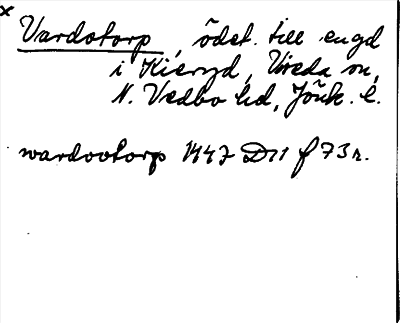 x
Vardotorp, ödet. till engd
i Kieryd, Vireda sn,
N. Vedbo hd, Jönk. l.
wardootorp 1447 D11 f 73r.